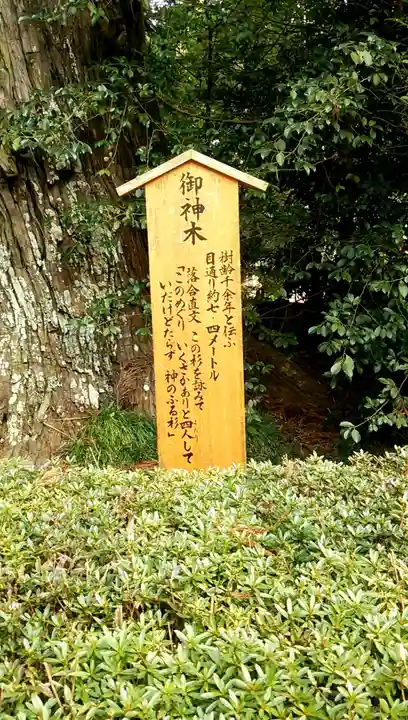 御神木
樹齢千余年と伝ふ
目通り約七、四メートル
落合直文 この杉を詠みて
「このめぐり いくさかありと四人して
いだけどたらず 神のふる杉」